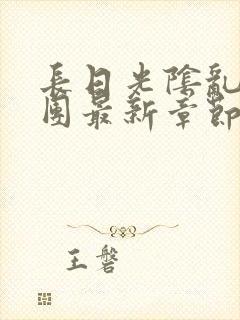 長日光陰亂
團最新章節
王磐